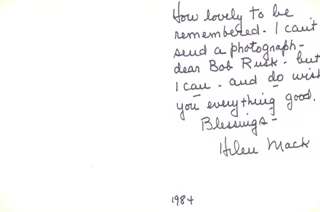 How lovely to be
remembered. I can't
send a photograph -
dear Bob Rusk - but
I can - and do wish
you everything good.
Blessings -
Helen Mack
1984